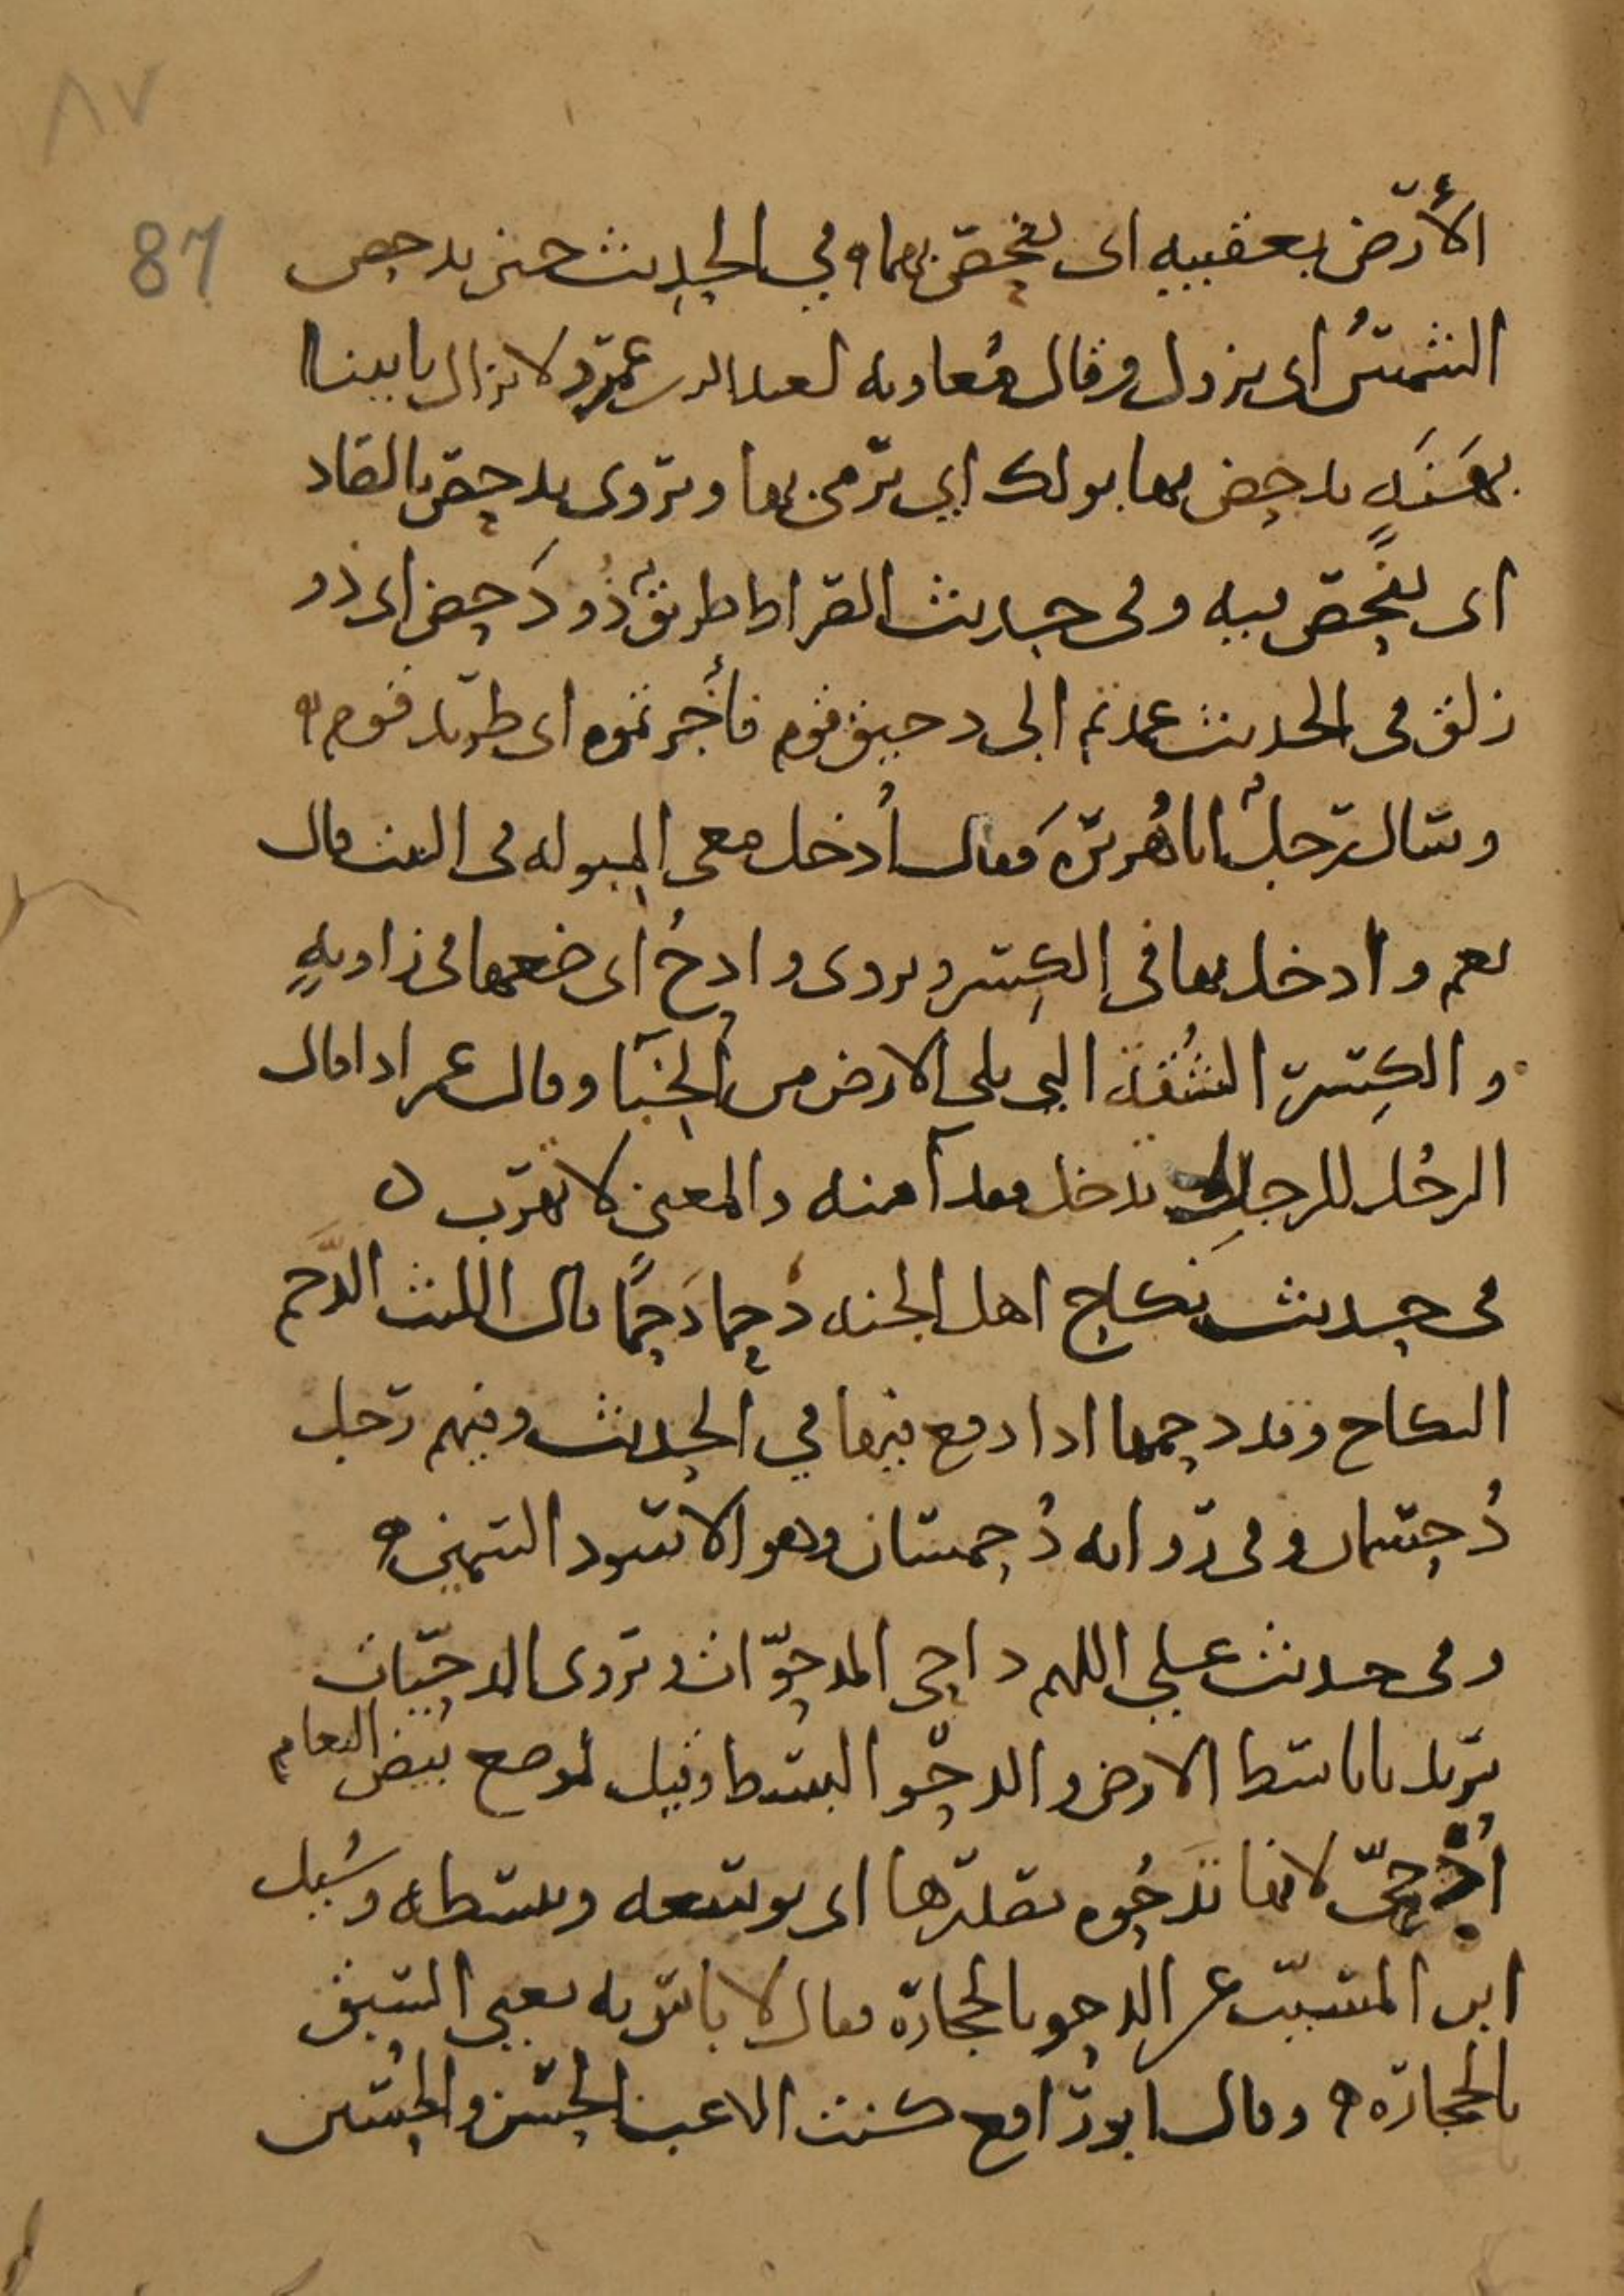 ٨٧
87
الأرض بعقبيه اى يفحص بهما وفي الحديث حين يدحض
الشمسُ اى يزول وقال مُعاويه لعبد الله بن عمرو لا يزال يأتينا
بهَنَةٍ يدحض بها بولك اى يرمى بها ويروى يدحص بالصاد
اى يفحص فيه وفى حديث الصراط طريقٌ ذُو دَحض اى ذو
زلق فى الحديث عمدتم الى دحيق قوم فأجرتموه اى طريد قوم
وسال رجلٌ ابا هُريرة فقال أدخل معى المبوله فى البيت قال
نعم وادخل بها فى الكِسر ويروى وادحُ اى ضعها فى زاويهٍ
والكِسر الشُقة التى تلى الارض من الخبَآ وقال عمر اذا قال
الرجُل للرجل تدخل فقد آمنه والمعنى لا تهرب
فى حديث نكاح اهل الجنه دَحما دَحمًا قال الليث الدَّحم
النكاح وقد دحمها اذا دفع فيها في الحديث وفيهم رجل
دُحسمان وفى روايه دُحمسان وهو الاسود السمين
وفى حديث علي اللهم داحى المدحوّات ويروى المدحيّات
يريد يا باسط الارض والدحو البسط وقيل لموضع بيض النعام
أُدحىّ لانها تدحُوه بصدرها اى توسعه وتبسطه وسُئل
ابن المسيّب عن الدحو بالحجارة فقال لا باس به يعنى السبق
بالحجارة وقال ابو رافع كنت الاعب الحسن والحسين